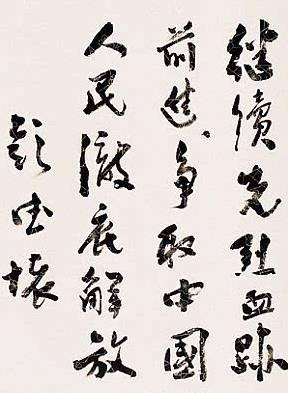 继续先烈血跡
前进、争取中國
人民澈底解放
彭德怀